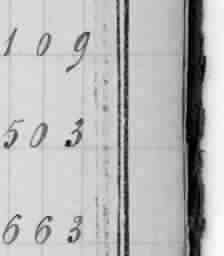 109
503
663